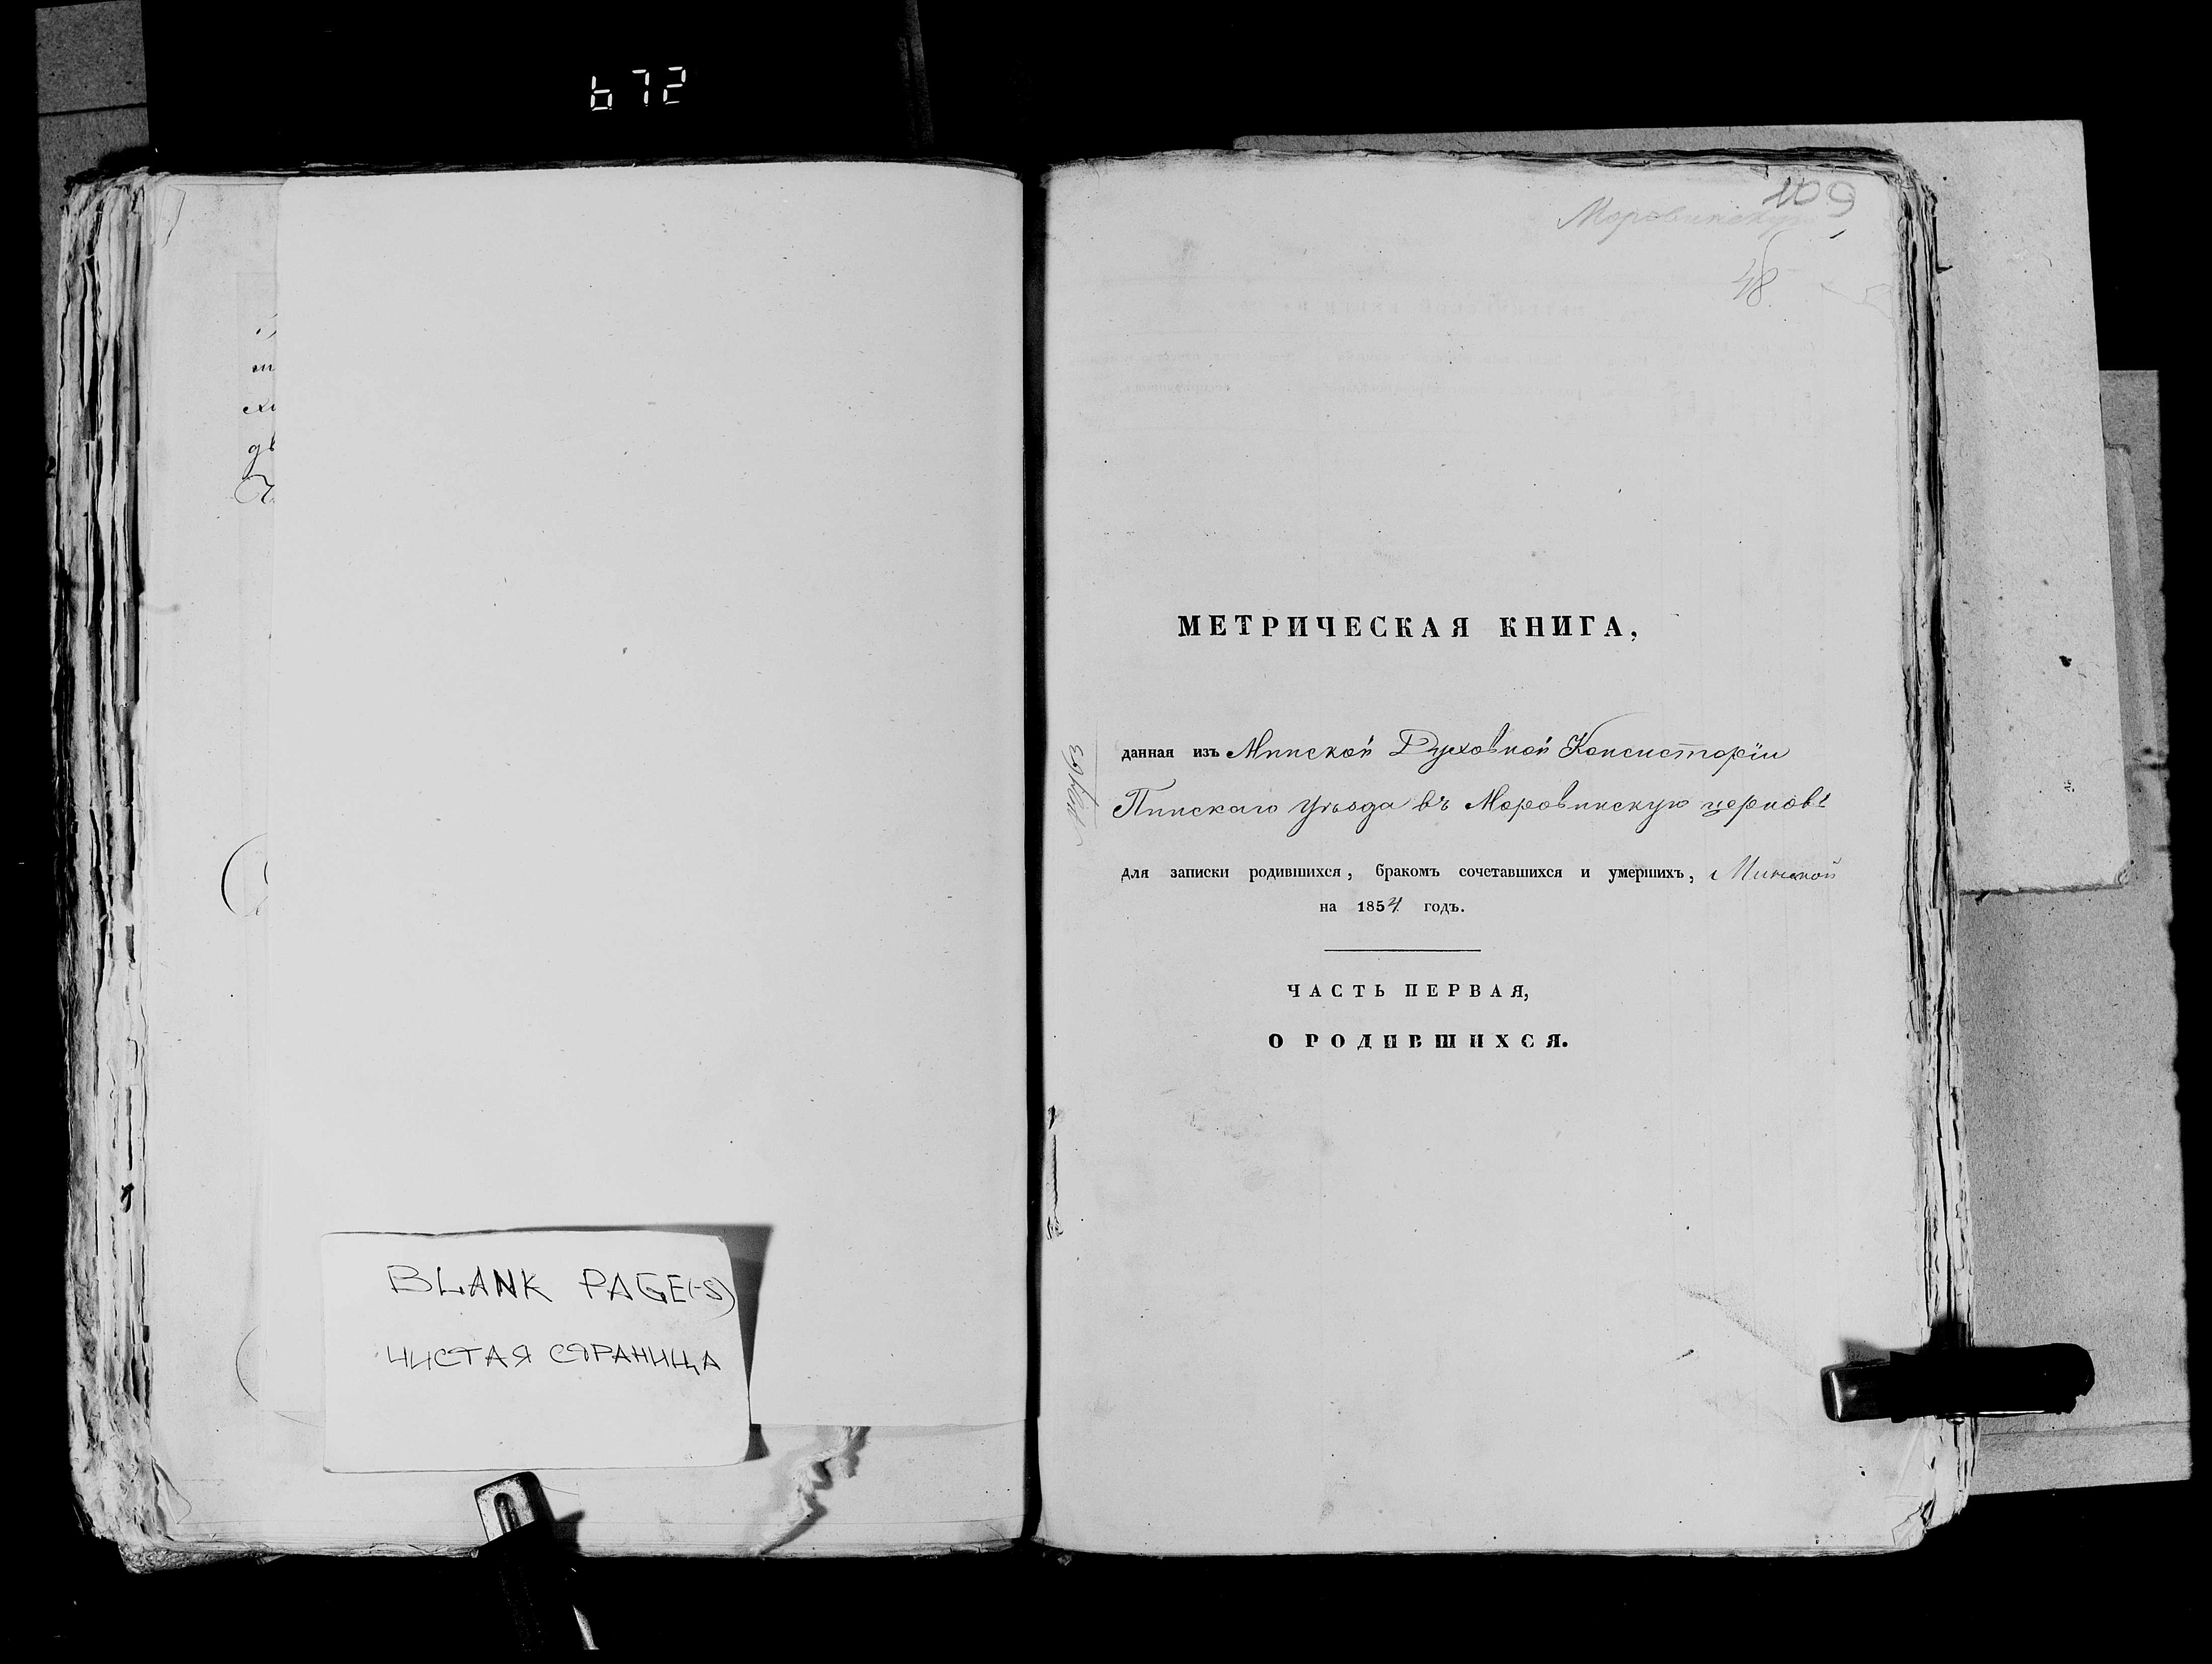 672
109
Моровинскую
48.
МЕТРИЧЕСКАЯ КНИГА,
данная изъ Минской Духовной Консисторіи
Пинскаго Уѣзда въ Моровинскую церковь
для записки родившихся, бракомъ сочетавшихся и умершихъ, Минской
на 1854 годъ.
ЧАСТЬ ПЕРВАЯ,
О РОДИВШИХСЯ.
BLANK PAGE(-S)
ЧИСТАЯ СТРАНИЦА